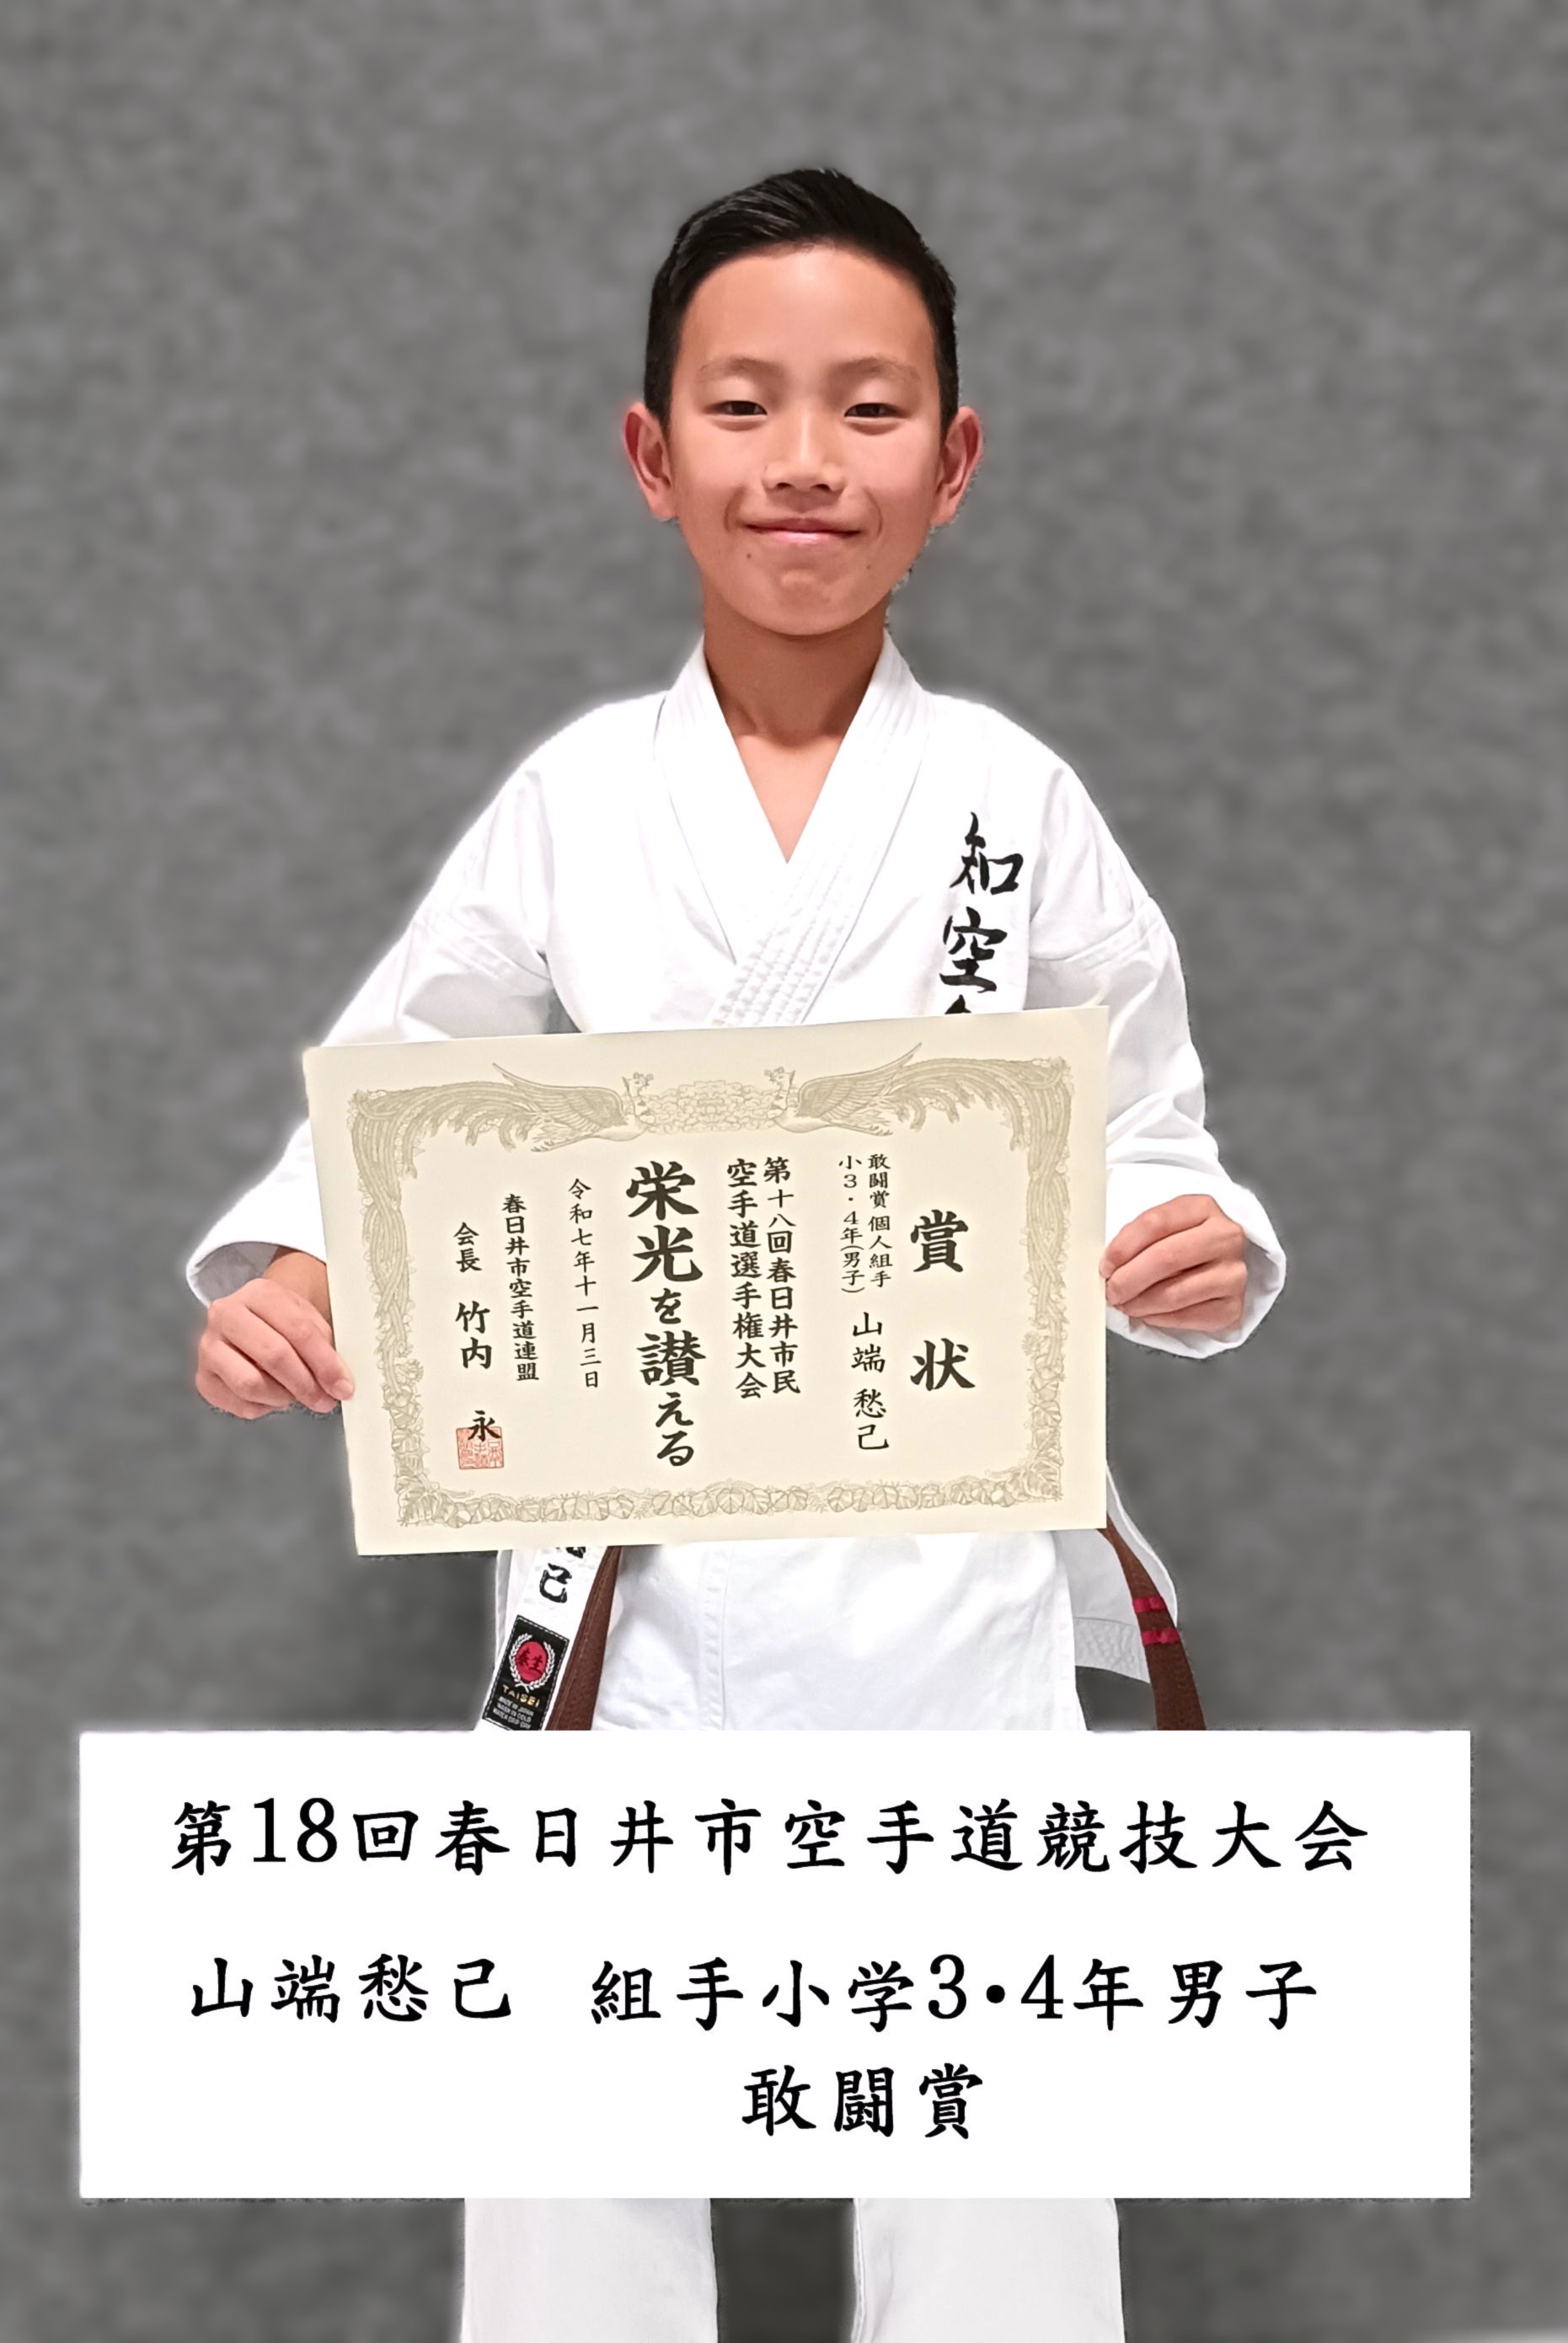 和空
賞状
敢闘賞 個人組手
小3・4年(男子)
山端 愁己
第十八回春日井市民
空手道選手権大会
栄光を讃える
令和七年十一月三日
春日井市空手道連盟
会長 竹内 永
己
TAISEI
第18回春日井市空手道競技大会
山端愁己 組手小学3・4年男子
敢闘賞